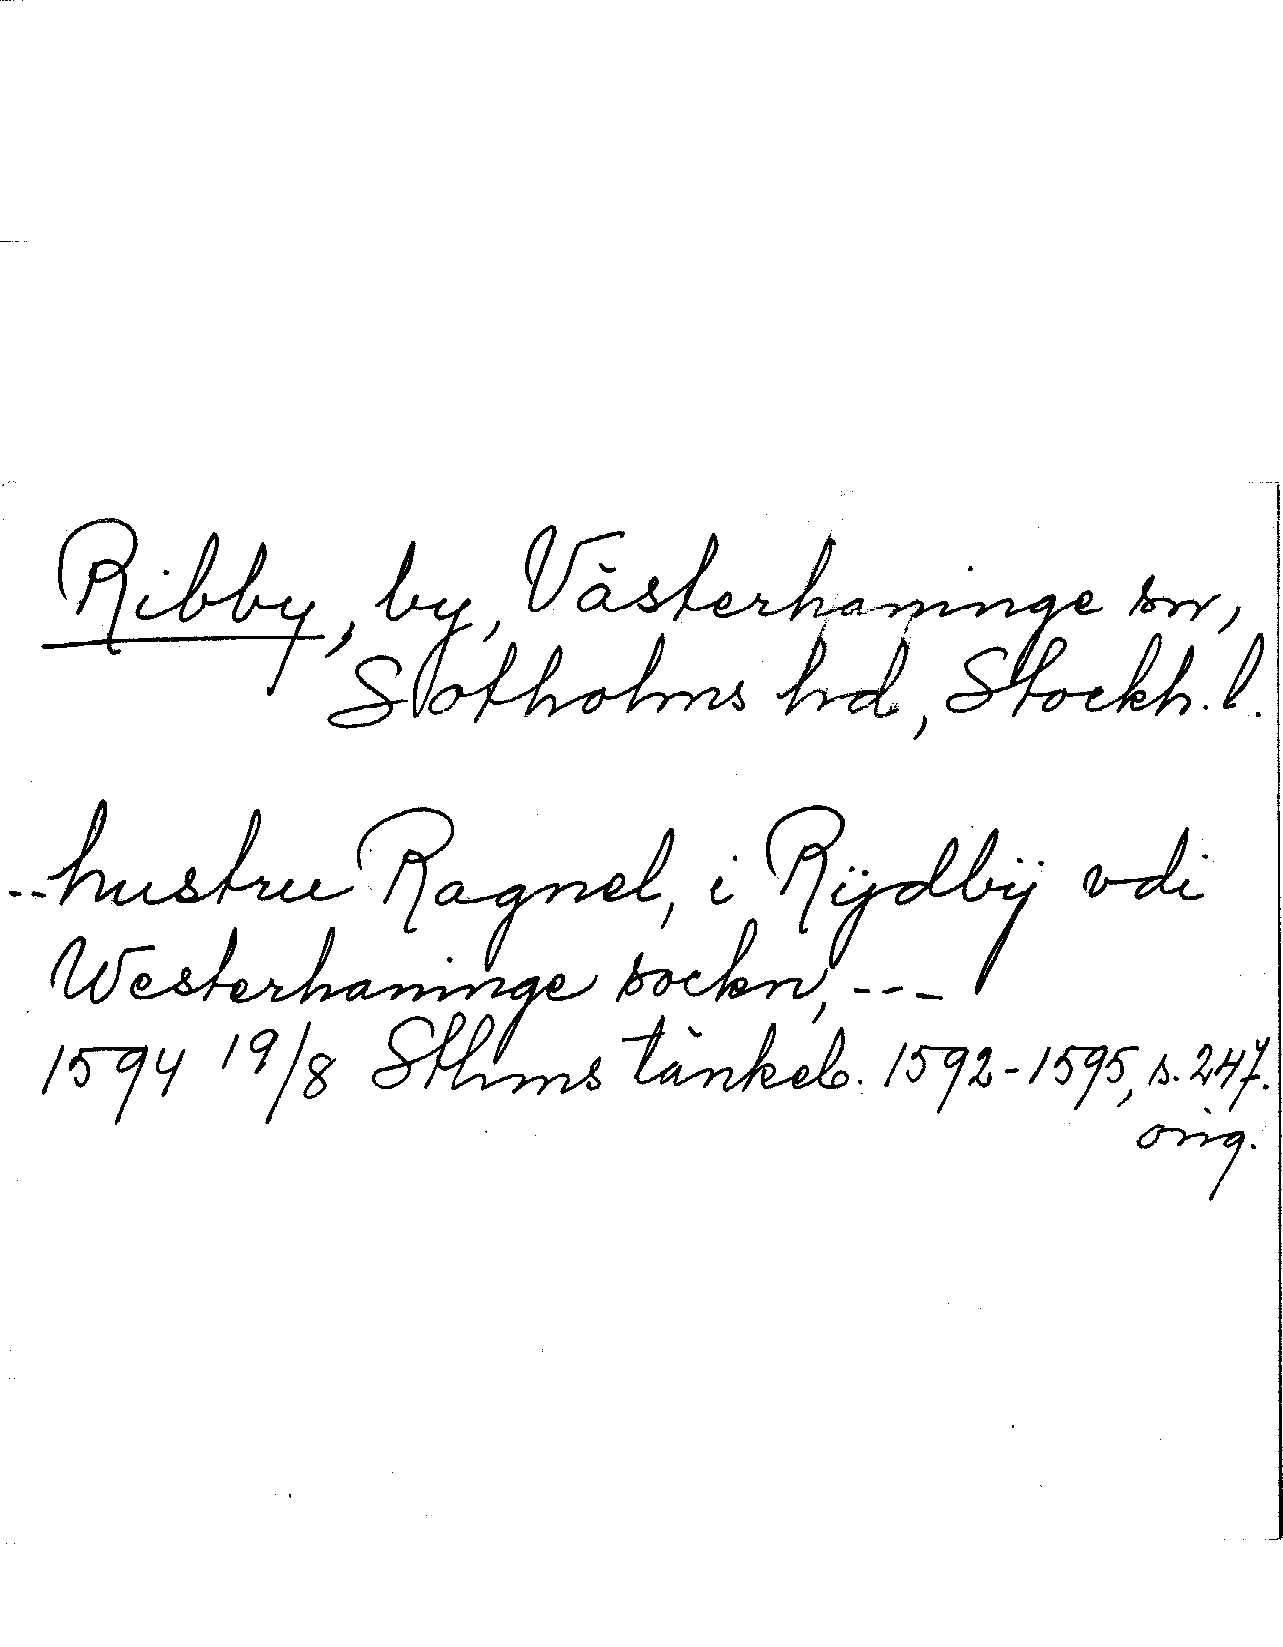 Ribby, by, Västerhaninge sn,
Sotholms hd, Stockh. l.
--hustru Ragnel, i Rÿdbÿ vdi
Westerhaninge sockn, ---
1594 19/8 Sthms tänkeb. 1592-1595, s. 247.
orig.